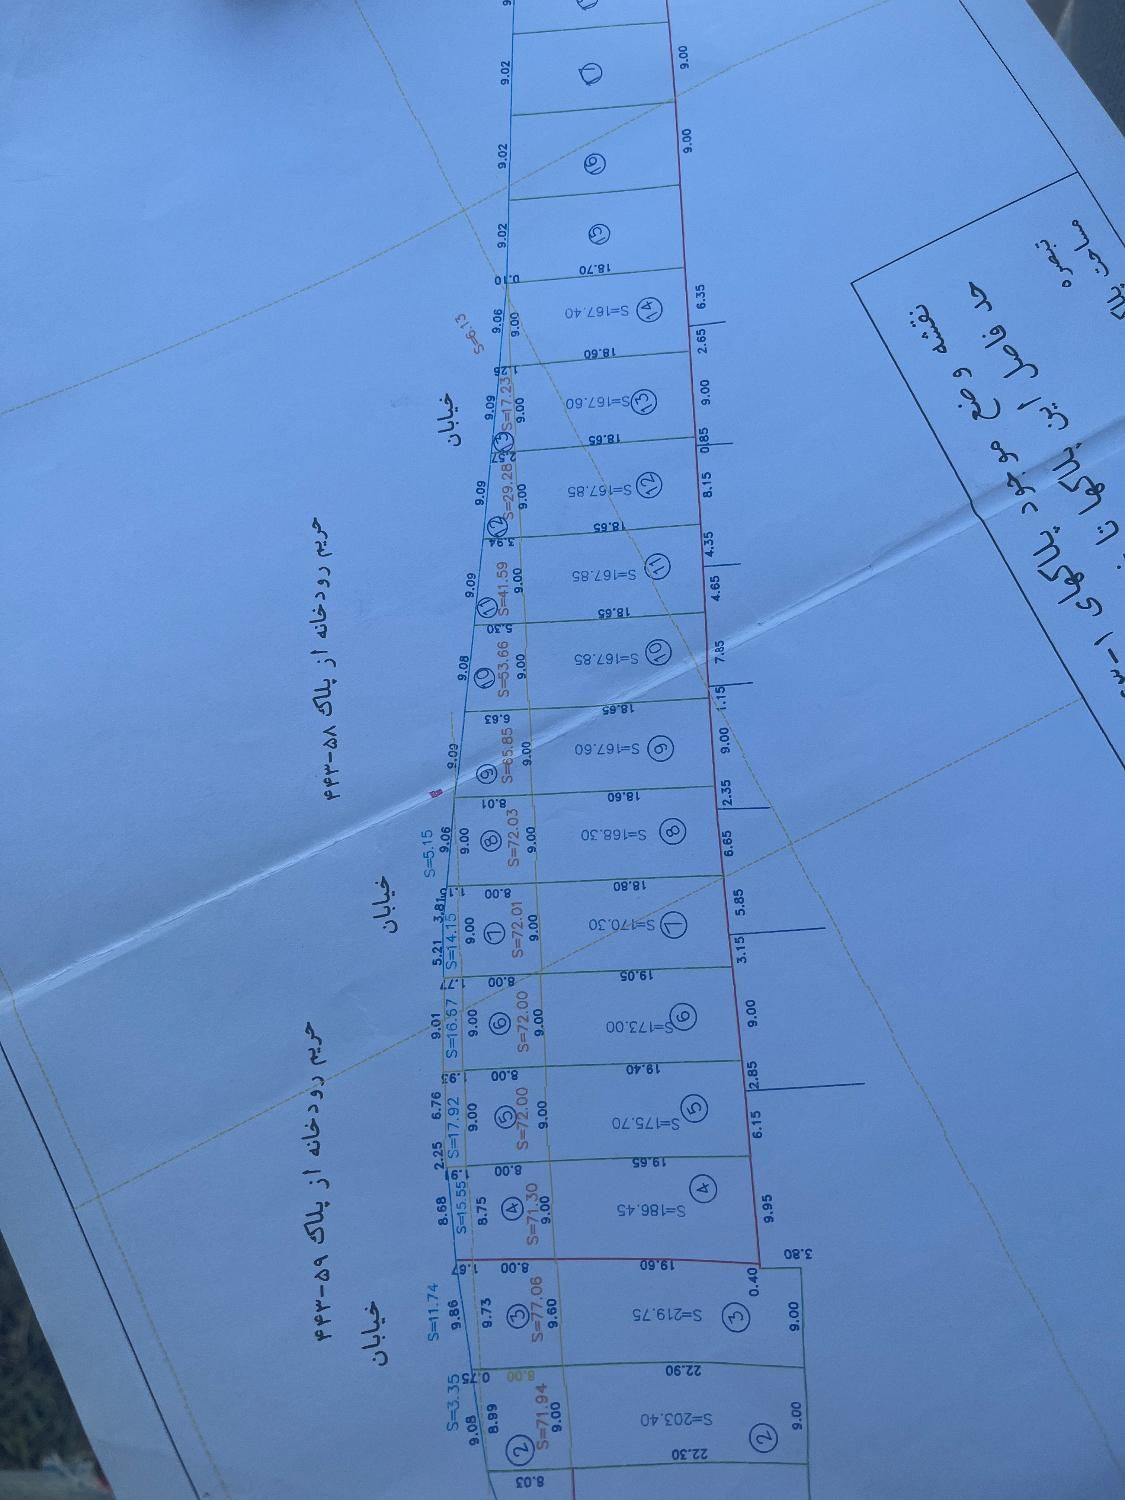 9.02
17
9.00
9.02
16
9.00
9.02
15
0.10
18.70
9.06
9.00
S=167.40
14
6.35
S=6.13
18.60
2.65
خیابان
9.09
S=17.23
9.00
S=167.60
13
9.00
13
18.65
0.85
9.09
S=29.28
9.00
S=167.85
12
8.15
12
18.65
4.35
9.09
S=41.59
9.00
S=167.85
11
4.65
11
5.30
18.65
حریم رودخانه از پلاک ۵۸-۴۴۳
9.08
S=53.66
9.00
S=167.85
10
7.85
10
6.63
18.65
1.15
9.09
S=65.85
9.00
S=167.60
9
9.00
9
8.01
18.60
2.35
S=5.15
9.06
9.00
8
S=72.03
9.00
S=168.30
8
6.65
8.00
18.80
خیابان
5.21
3.81
S=14.15
9.00
7
S=72.01
9.00
S=170.30
7
5.85
3.15
1.77
8.00
19.05
9.01
S=16.57
9.00
6
S=72.00
9.00
S=173.00
6
9.00
8.00
19.40
2.85
حریم رودخانه از پلاک ۵۹-۴۴۳
2.25
6.76
S=17.92
9.00
5
S=72.00
9.00
S=175.70
5
6.15
8.00
19.65
8.68
S=15.55
8.75
4
S=71.30
9.00
S=186.45
4
9.95
1.67
8.00
19.60
0.40
3.80
خیابان
S=11.74
9.86
9.73
3
S=77.06
9.60
S=219.75
3
9.00
0.75
8.00
22.90
S=3.35
9.08
8.99
2
S=71.94
9.00
S=203.40
2
9.00
8.03
22.30
نقشه وضع موجود پلاکهای ۱-
حد فاصل این پلاکها تا
تبصره
مساحت پلاک